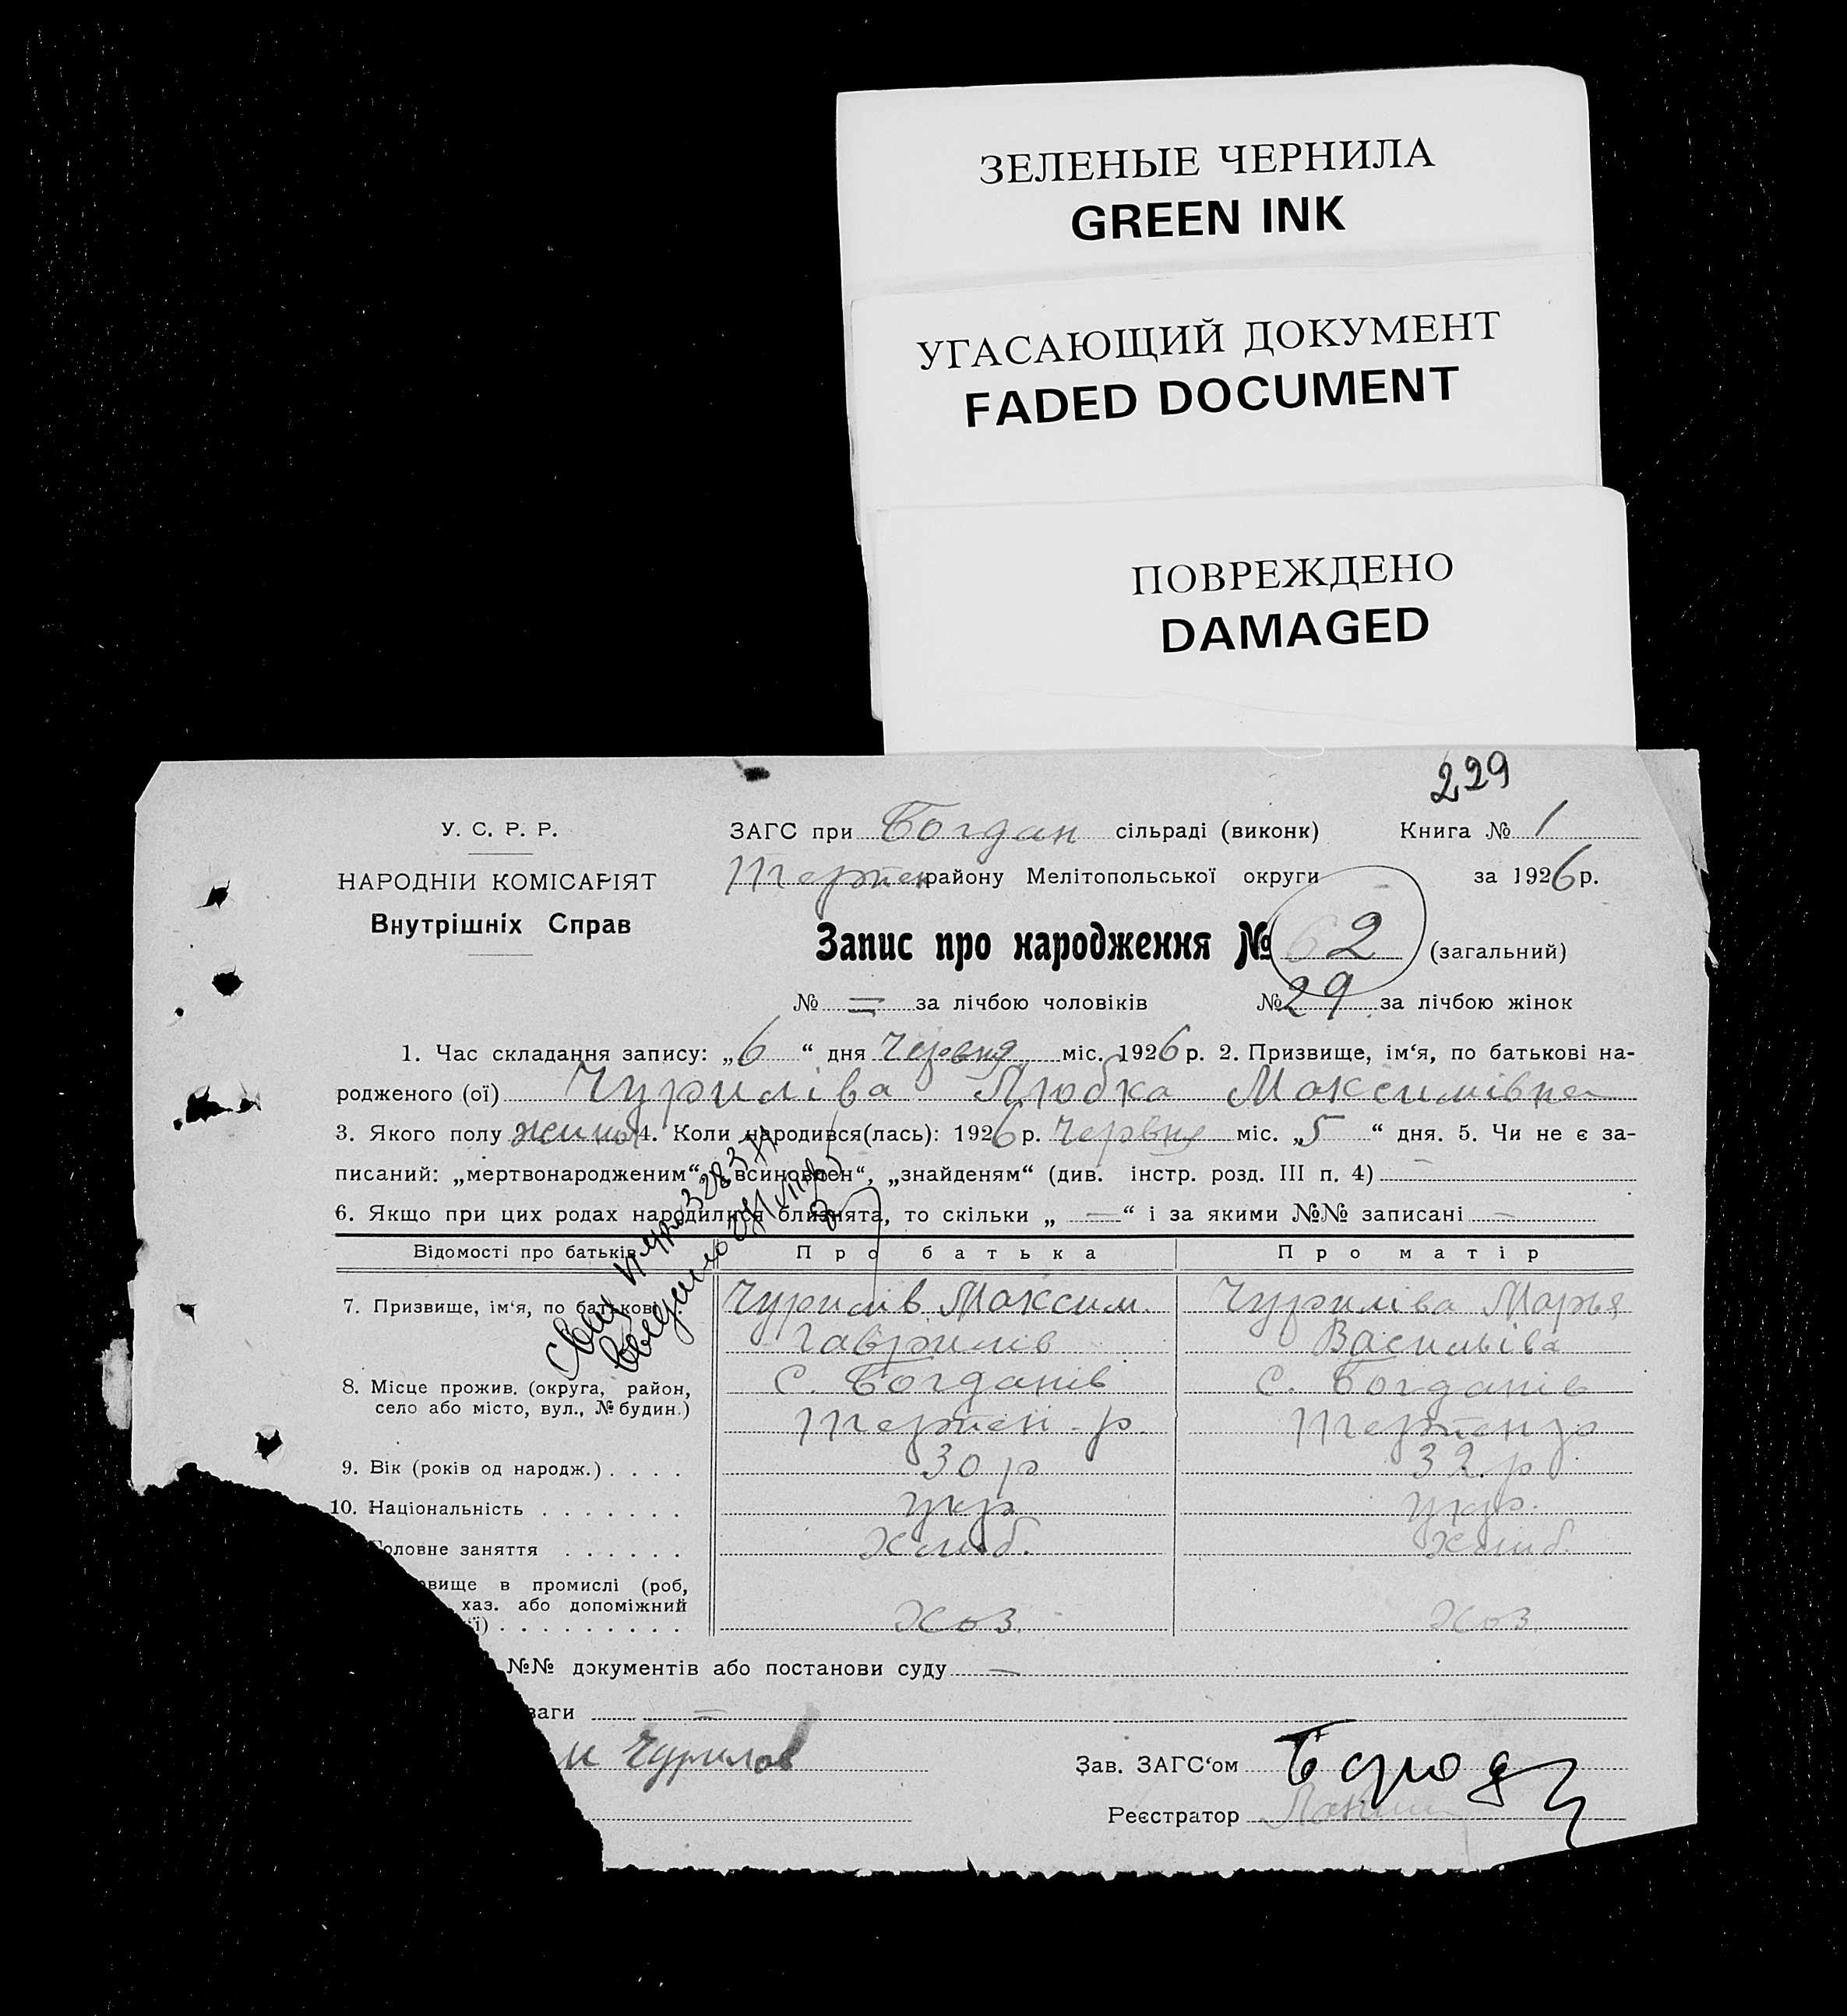 ЗЕЛЕНЫЕ ЧЕРНИЛА
GREEN INK
УГАСАЮЩИЙ ДОКУМЕНТ
FADED DOCUMENT
ПОВРЕЖДЕНО
DAMAGED
229
У. С. Р. Р.
НАРОДНІЙ КОМІСАРІЯТ
Внутрішніх Справ
ЗАГС при Богдан сільраді (виконк) Книга № 1
Терпен району Мелітопольської округи за 1926 р.
Запис про народження № 62 (загальний)
№ — за лічбою чоловіків № 29 за лічбою жінок
1. Час складання запису: „6“ дня Червня міс. 1926 р. 2. Призвище, ім‘я, по батькові на-
родженого (ої) Чуриліва Любка Максимівна
3. Якого полу жиноч 4. Коли народився(лась): 1926 р. Червня міс. „5“ дня. 5. Чи не є за-
писаний: „мертвонародженим“, „всиновлен“, „знайденям“ (див. інстр. розд. III п. 4) —
6. Якщо при цих родах народилися близнята, то скільки „—“ і за якими №№ записані —
Відомості про батьків Про батька Про матір
7. Призвище, ім‘я, по батькові Чурилів Максим. Чуриліва Марья
Гаврилів Васильіва
8. Місце прожив. (округа, район, с. Богданів с. Богданів
село або місто, вул., № будин.) Терпен. р. Терпен р
9. Вік (років од народж.) . . . . 30 р 32. р
10. Національність . . . . . . . укр укр.
Головне заняття . . . . . . Хлиб. Хлиб.
овище в промислі (роб,
хаз. або допоміжний
ї) . . . . . . . . . Хоз. Хоз.
№№ документів або постанови суду —
ваги —
м Чурилов Зав. ЗАГС‘ом
Реєстратор